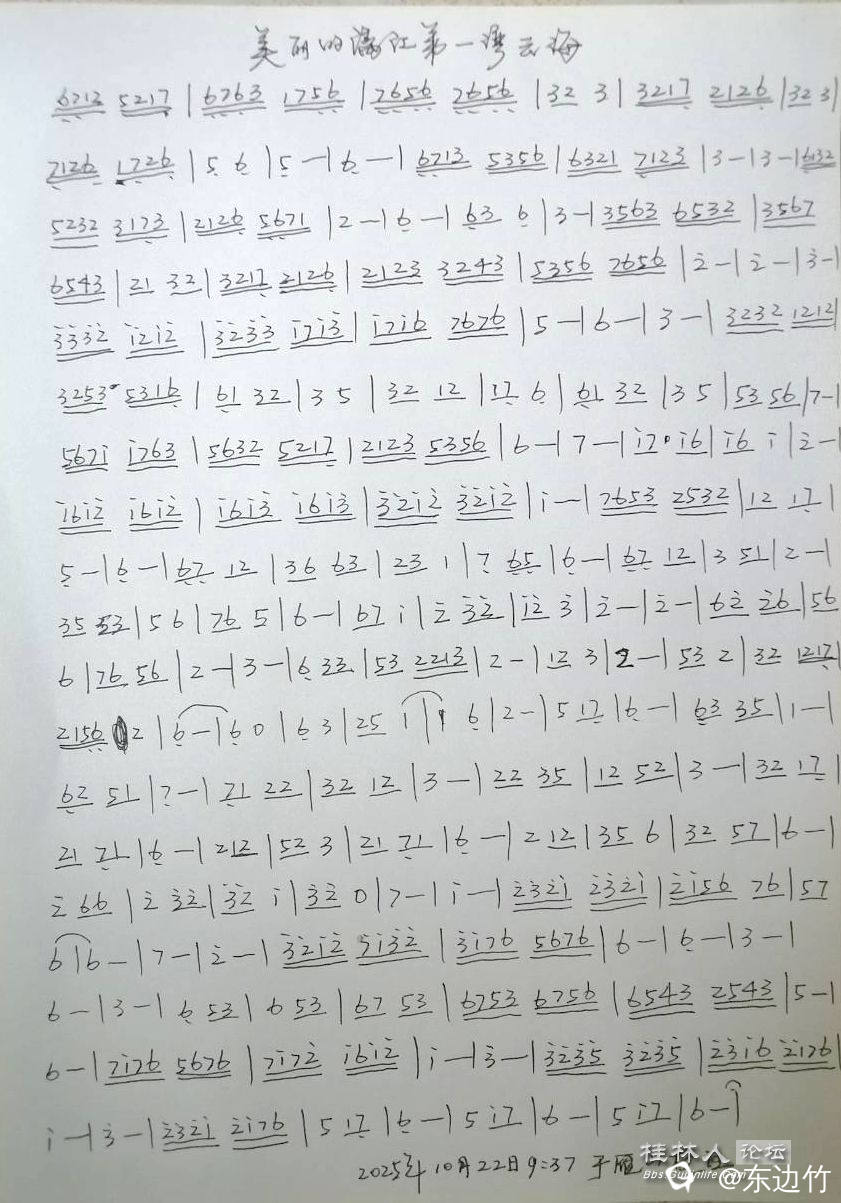 美丽的漓江第一湾云海
6712 5217 | 6763 1756 | 7656 7656 | 32 3 | 3217 2126 | 32 3 |
7126 1726 | 5 6 | 5 — | 6 — | 6713 5356 | 6321 7123 | 3 — | 3 — | 6132
5232 3173 | 2126 5671 | 2 — | 6 — | 63 6 | 3 — | 3563 6532 | 3567
6543 | 21 32 | 3217 2126 | 2123 3243 | 5356 7656 | 2̇ — | 2̇ — | 3̇ — |
3̇3̇3̇2̇ 1̇2̇1̇2̇ | 3̇2̇3̇3̇ 1̇71̇3̇ | 1̇71̇6 7676 | 5 — | 6 — | 3 — | 3232 1212 |
3253 5316 | 61 32 | 3 5 | 32 12 | 17 6 | 61 32 | 3 5 | 53 56 | 7 — |
5671̇ 1̇763 | 5632 5217 | 2123 5356 | 6 — | 7 — | 1̇7· 1̇6 | 1̇6 1̇ | 2̇ — |
1̇61̇2̇ 1̇61̇2̇ | 1̇61̇3̇ 1̇61̇3̇ | 3̇2̇1̇2̇ 3̇2̇1̇2̇ | 1̇ — | 7653 2532 | 12 17 |
5 — | 6 — | 67 12 | 36 63 | 23 1 | 7 65 | 6 — | 67 12 | 3 51 | 2 — |
35 53 | 5 6 | 76 5 | 6 — | 67 1̇ | 2̇ 3̇2̇ | 1̇2̇ 3̇ | 2̇ — | 2̇ — | 62̇ 2̇6 | 56
6 | 76 56 | 2 — | 3 — | 6 33 | 53 2213 | 2 — | 12 3 | 2 — | 53 2 | 32 1217 |
2156 2 | 6 — | 6 0 | 6 3 | 25 1 | 1 6 | 2 — | 5 17 | 6 — | 63 35 | 1 — |
62 51 | 7 — | 71 22 | 32 12 | 3 — | 22 35 | 12 52 | 3 — | 32 17 |
21 71 | 6 — | 2 12 | 52 3 | 21 71 | 6 — | 2 12 | 35 6 | 32 57 | 6 — |
2̇ 66 | 2̇ 3̇2̇ | 3̇2̇ 1̇ | 3̇2̇ 0 | 7 — | 1̇ — | 2̇3̇2̇1̇ 2̇3̇2̇1̇ | 2̇1̇56 76 | 57
6 | 6 — | 7 — | 2̇ — | 3̇2̇1̇2̇ 5̇1̇3̇2̇ | 3̇1̇76 5676 | 6 — | 6 — | 3 — |
6 — | 3 — | 6 53 | 6 53 | 67 53 | 6753 6756 | 6543 2543 | 5 — |
6 — | 71̇76 5676 | 71̇72̇ 1̇61̇2̇ | 1̇ — | 3̇ — | 3̇2̇3̇5̇ 3̇2̇3̇5̇ | 2̇3̇1̇6 2̇1̇76 |
1̇ — | 3̇ — | 2̇3̇2̇1̇ 2̇1̇76 | 5 17 | 6 — | 5 1̇7 | 6 — | 5 1̇7 | 6 — |
2025年10月22日9:37 于雁
桂林人论坛
Bbs.Guilinlife.com
@东边竹